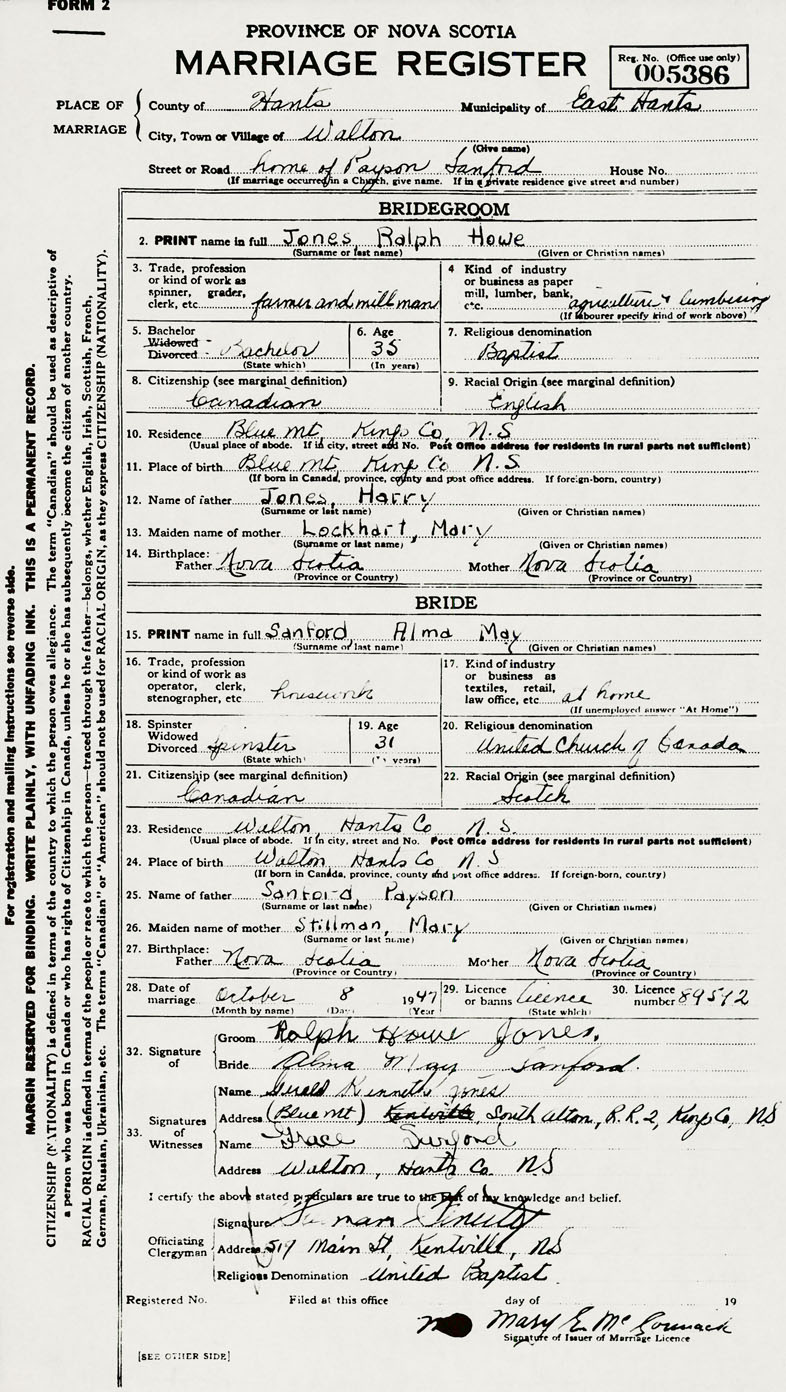 FORM 2
PROVINCE OF NOVA SCOTIA
MARRIAGE REGISTER
Reg. No. (Office use only)
005386
PLACE OF MARRIAGE
County of Hants Municipality of East Hants
City, Town or Village of Walton
(Give name)
Street or Road home of Payson Sanford House No.
(If marriage occurred in a Church, give name. If in a private residence give street and number)
BRIDEGROOM
2. PRINT name in full Jones, Ralph Howe
(Surname or last name) (Given or Christian names)
3. Trade, profession or kind of work as spinner, grader, clerk, etc. farmer and mill man
4 Kind of industry or business as paper mill, lumber, bank, etc. agriculture & lumbering
(If labourer specify kind of work above)
5. Bachelor Widowed Divorced - Bachelor
(State which)
6. Age 35
(In years)
7. Religious denomination
Baptist
8. Citizenship (see marginal definition)
Canadian
9. Racial Origin (see marginal definition)
English
10. Residence Blue Mt, Kings Co, N.S
(Usual place of abode. If in city, street and No. Post Office address for residents in rural parts not sufficient)
11. Place of birth Blue Mt, King Co N.S
(If born in Canada, province, county and post office address. If foreign-born, country)
12. Name of father Jones, Harry
(Surname or last name) (Given or Christian names)
13. Maiden name of mother Lockhart, Mary
(Surname or last name) (Given or Christian names)
14. Birthplace: Father Nova Scotia Mother Nova Scotia
(Province or Country) (Province or Country)
BRIDE
15. PRINT name in full Sanford, Alma May
(Surname or last name) (Given or Christian names)
16. Trade, profession or kind of work as operator, clerk, stenographer, etc housework
17. Kind of industry or business as textiles, retail, law office, etc. at home
(If unemployed answer "At Home")
18. Spinster Widowed Divorced spinster
(State which)
19. Age 31
(In years)
20. Religious denomination
United Church of Canada
21. Citizenship (see marginal definition)
Canadian
22. Racial Origin (see marginal definition)
Scotch
23. Residence Walton, Hants Co N.S.
(Usual place of abode. If in city, street and No. Post Office address for residents in rural parts not sufficient)
24. Place of birth Walton, Hants Co N.S
(If born in Canada, province, county and post office address. If foreign-born, country)
25. Name of father Sanford, Payson
(Surname or last name) (Given or Christian names)
26. Maiden name of mother Stillman, Mary
(Surname or last name) (Given or Christian names)
27. Birthplace: Father Nova Scotia Mother Nova Scotia
(Province or Country) (Province or Country)
28. Date of marriage October 8 1947
(Month by name) (Day) (Year
29. Licence or banns licence
(State which)
30. Licence number 89512
32. Signature of
Groom Ralph Howe Jones.
Bride Alma May Sanford.
33. Signatures of Witnesses
Name Gerald Kenneth Jones
Address (Blue Mt) Kentville, South Alton, R.R.2, Kings Co, NS
Name Grace Sanford
Address Walton, Hants Co NS
I certify the above stated particulars are true to the best of my knowledge and belief.
Officiating Clergyman
Signature
Address 517 Main St, Kentville, NS
Religious Denomination United Baptist.
Registered No. Filed at this office day of 19
Mary E. McCormack
Signature of Issuer of Marriage Licence
[SEE OTHER SIDE]
For registration and mailing instructions see reverse side.
MARGIN RESERVED FOR BINDING. WRITE PLAINLY, WITH UNFADING INK. THIS IS A PERMANENT RECORD.
CITIZENSHIP (NATIONALITY) is defined in terms of the country to which the person owes allegiance. The term "Canadian" should be used as descriptive of
a person who was born in Canada or who has rights of Citizenship in Canada, unless he or she has subsequently become the citizen of another country.
RACIAL ORIGIN is defined in terms of the people or race to which the person—traced through the father—belongs, whether English, Irish, Scottish, French,
German, Russian, Ukrainian, etc. The terms "Canadian" or "American" should not be used for RACIAL ORIGIN, as they express CITIZENSHIP (NATIONALITY).